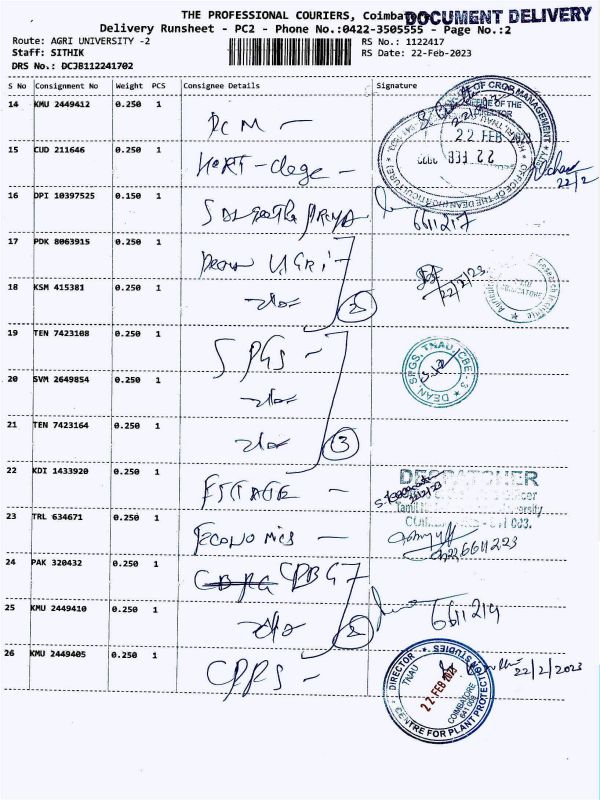 THE PROFESSIONAL COURIERS, Coimbatore
DOCUMENT DELIVERY
Delivery Runsheet - PC2 - Phone No.:0422-3505555 - Page No.:2
Route: AGRI UNIVERSITY -2 RS No.: 1122417
Staff: SITHIK RS Date: 22-Feb-2023
DRS No.: DCJB112241702
S No Consignment No Weight PCS Consignee Details Signature
14 KMU 2449412 0.250 1 DCM -
OFFICE OF THE DIRECTOR OF CROP MANAGEMENT
22 FEB 2023
OFFICE OF THE DEAN (HORTICULTURE)
22 FEB 2023
15 CUD 211646 0.250 1 HORT - 
22/2
16 DPI 10397525 0.150 1
6611217
17 PDK 8063915 0.250 1
22/2/23
18 KSM 415381 0.250 1 2
19 TEN 7423108 0.250 1 SPGS -
DEAN, SPGS, TNAU, CBE-3
20 SVM 2649854 0.250 1
21 TEN 7423164 0.250 1 3
22 KDI 1433920 0.250 1 ESTATE -
DESPATCHER
23 TRL 634671 0.250 1 ECONOMICS -
6611223
24 PAK 320432 0.250 1 CPBG
25 KMU 2449410 0.250 1 2
6611219
26 KMU 2449405 0.250 1 CPPS -
22/2/2023
DIRECTOR
TNAU
22 FEB 2023
COIMBATORE
641 003
CENTRE FOR PLANT PROTECTION STUDIES